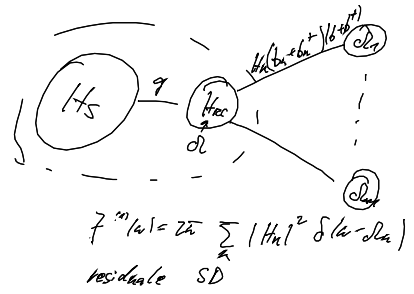 H_S
g
H_RC
Ω
H_n (b_n + b_n^+) (b + b^+)
Ω_1
J^(1)(ω) = 2π ∑_n |H_n|^2 δ(ω - Ω_n)
residuale SD